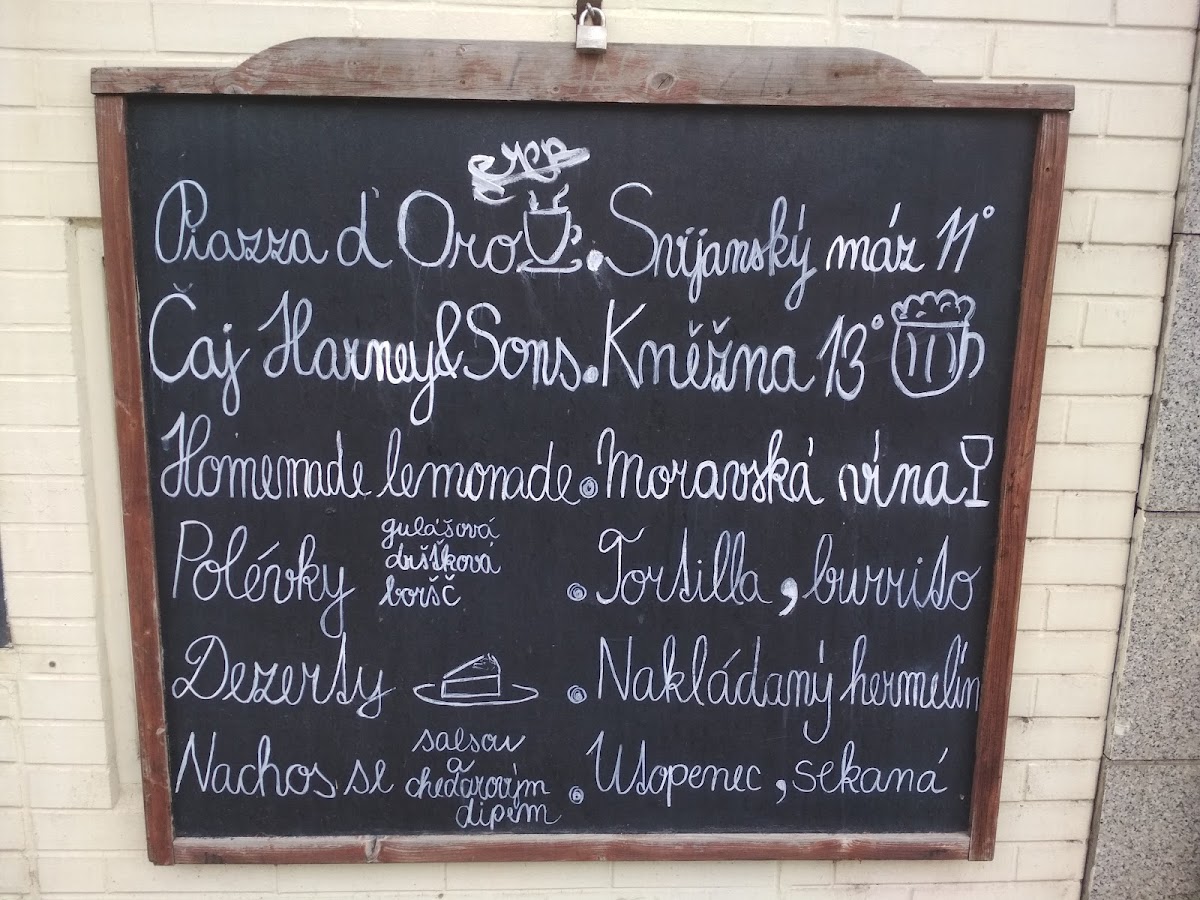 Piazza d'Oro . Svijanský máz 11°
Čaj Harney & Sons . Kněžna 13°
Homemade lemonade . Moravská vína
Polévky gulášová . Tortilla, burrito
dršťková
boršč
Dezerty . Nakládaný hermelín
Nachos se salsou . Utopenec, sekaná
a
chedarovým
dipem